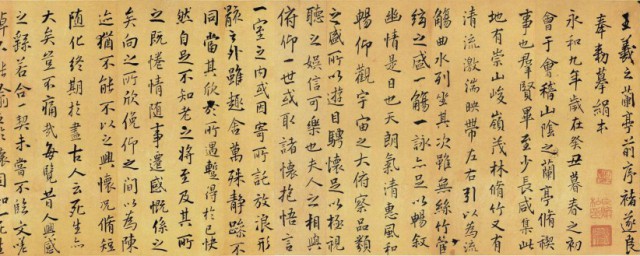 王羲之蘭亭前序褚遂良
奉勅摹絹本
永和九年歲在癸丑暮春之初
會于會稽山陰之蘭亭脩禊
事也羣賢畢至少長咸集此
地有崇山峻嶺茂林脩竹又有
清流激湍映帶左右引以為流
觴曲水列坐其次雖無絲竹管
絃之盛一觴一詠亦足以暢敘
幽情是日也天朗氣清惠風和
暢仰觀宇宙之大俯察品類
之盛所以遊目騁懷足以極視
聽之娛信可樂也夫人之相與
俯仰一世或取諸懷抱悟言
一室之內或因寄所託放浪形
骸之外雖趣舍萬殊靜躁不
同當其欣於所遇暫得於己快
然自足不知老之將至及其所
之既惓情隨事遷感慨係之
矣向之所欣俛仰之間以為陳
迹猶不能不以之興懷況脩短
隨化終期於盡古人云死生亦
大矣豈不痛哉每覽昔人興感
之由若合一契未嘗不臨文嗟